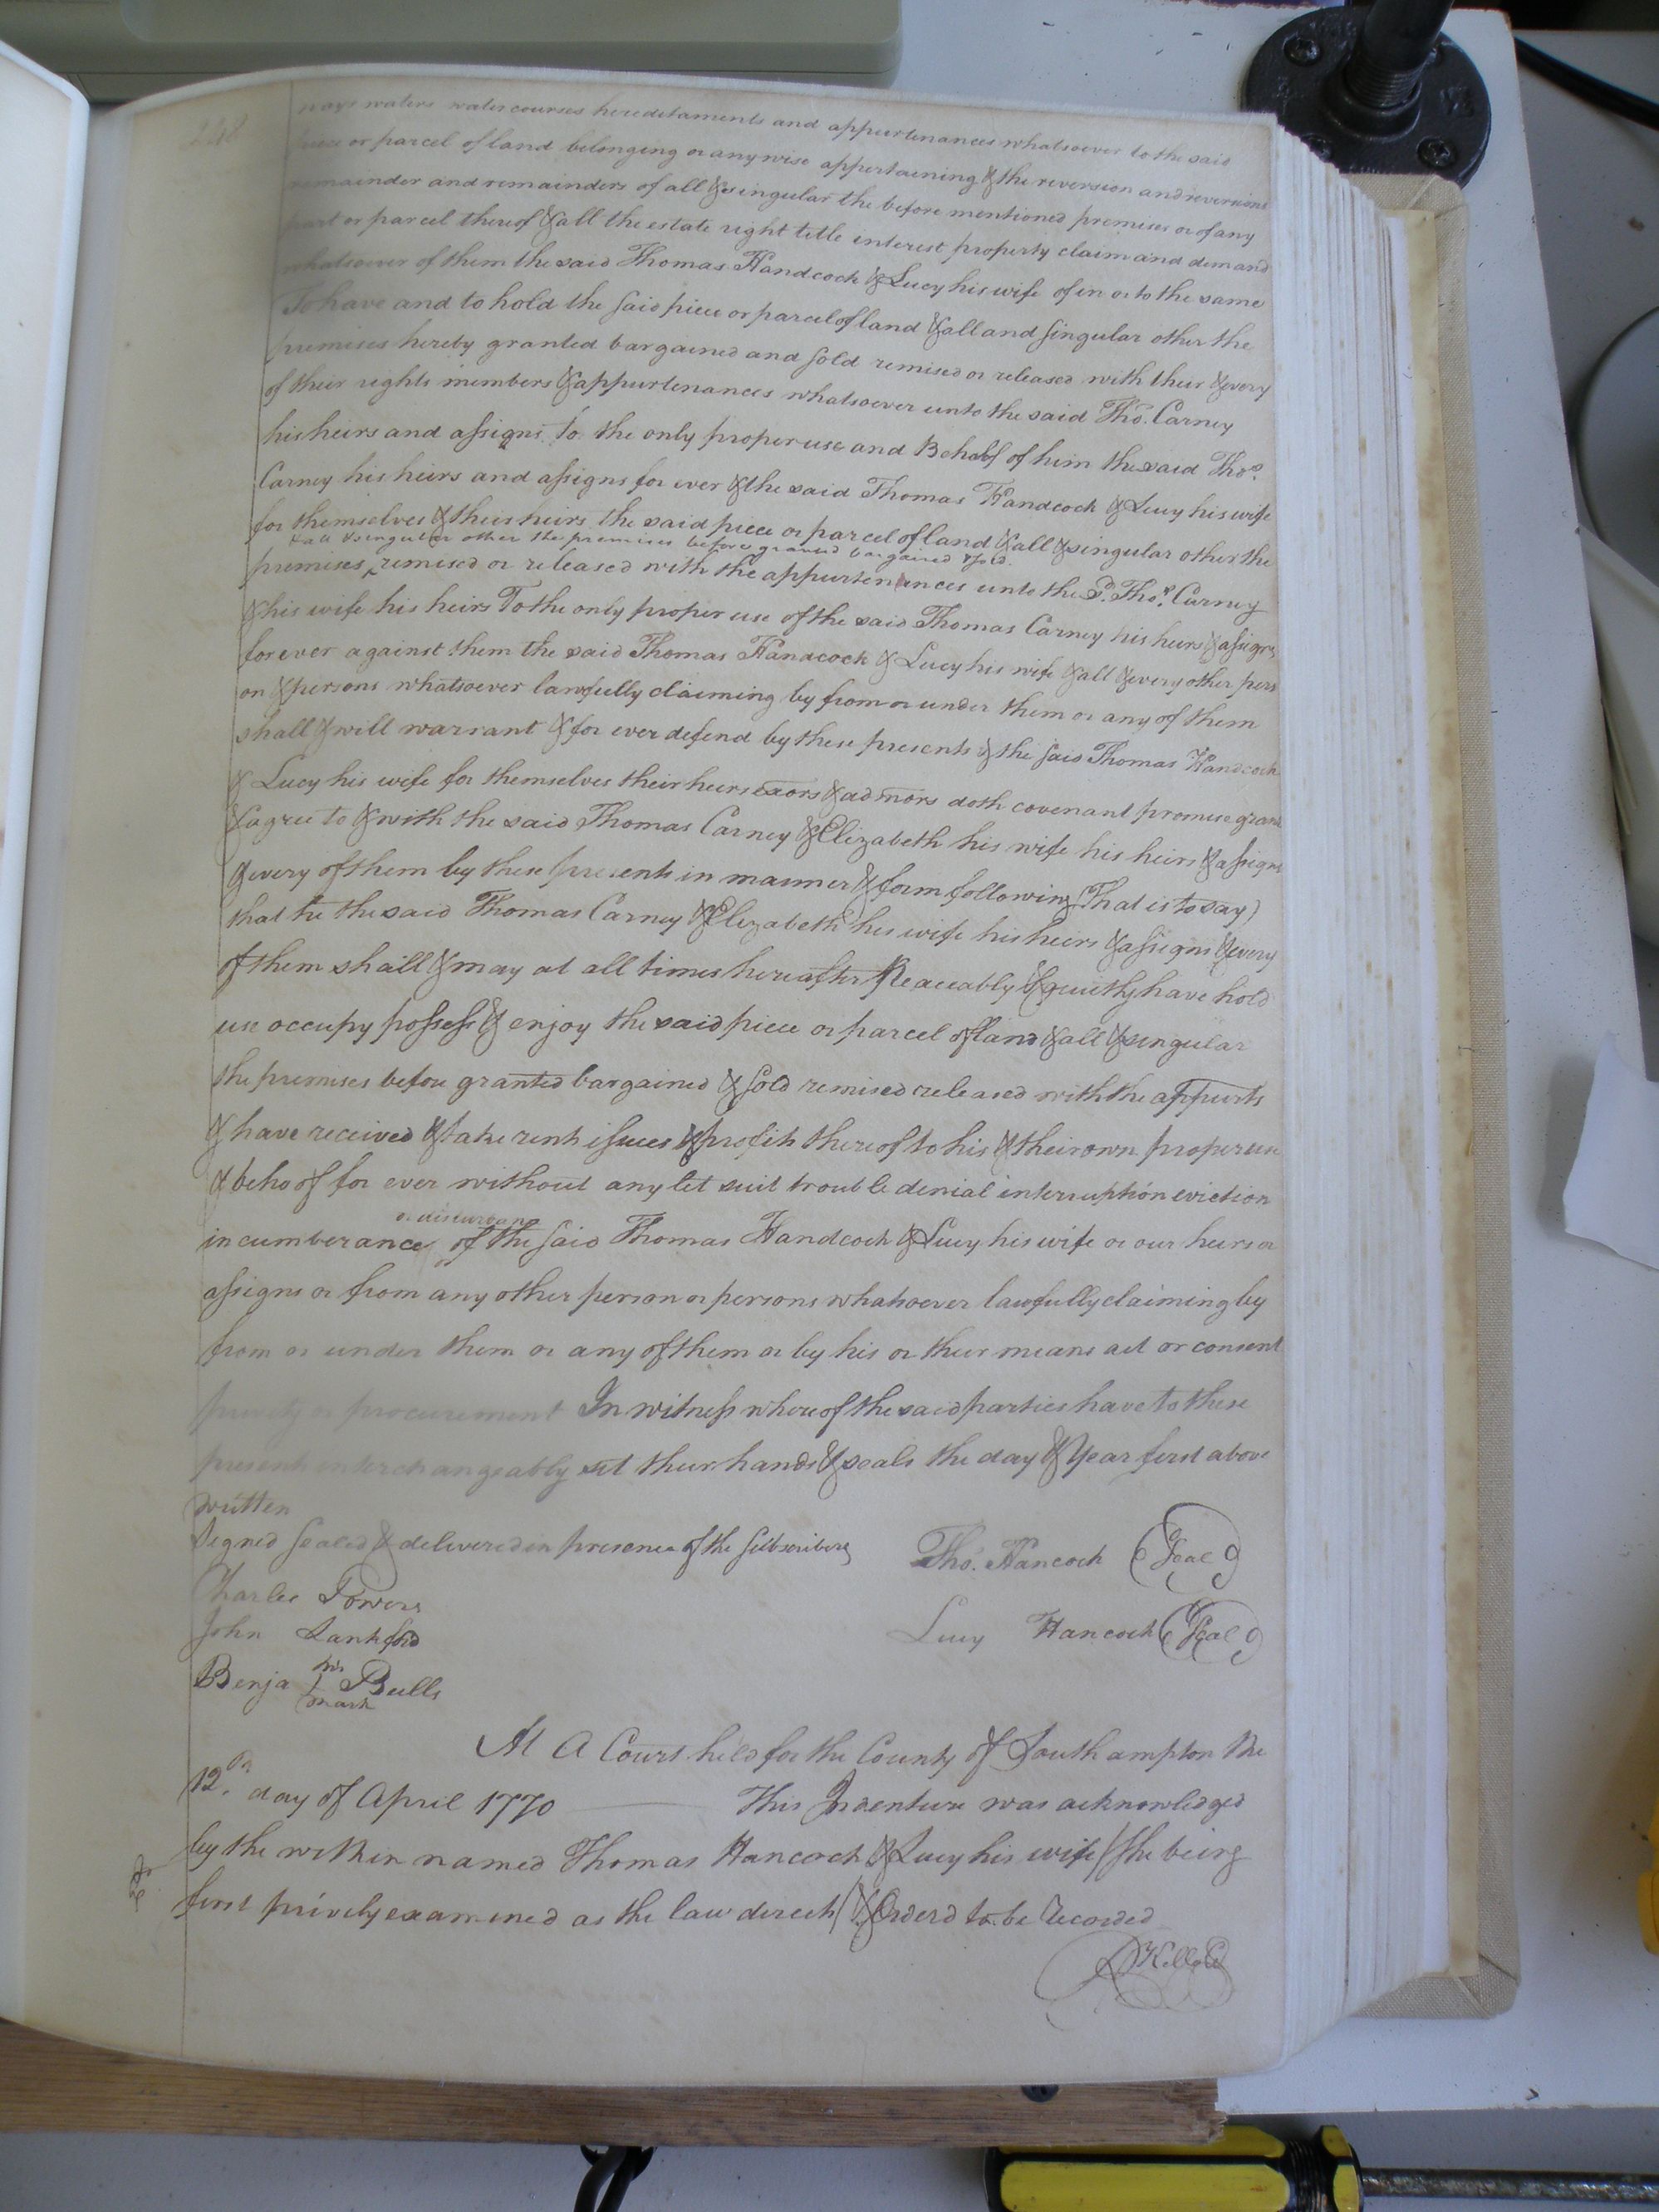 248
ways waters watercourses hereditaments and appurtenances whatsoever to the said
piece or parcel of land belonging or any wise appertaining & the reversion and reversions
remainder and remainders of all & singular the before mentioned premises or of any
part or parcel thereof & all the estate right title interest property claim and demand
whatsoever of them the said Thomas Handcock & Lucy his wife of in or to the same
To have and to hold the said piece or parcel of land & all and singular other the
premises hereby granted bargained and sold remised or released with their & every
of their rights members & appurtenances whatsoever unto the said Tho. Carney
his heirs and assigns To the only proper use and Behalf of him the said Thos.
Carney his heirs and assigns for ever & the said Thomas Handcock & Lucy his wife
for themselves & their heirs the said piece or parcel of land & all & singular other the
& all & singular other the premises before granted bargained & sold
premises, remised or released with the appurtenances unto the Sd. Thos. Carney
& his wife his heirs To the only proper use of the said Thomas Carney his heirs & assigns
forever against them the said Thomas Handcock & Lucy his wife & all & every other pers
on & persons whatsoever lawfully claiming by from or under them or any of them
shall & will warrant & for ever defend by these presents & the said Thomas Handcock
& Lucy his wife for themselves their heirs exors & admors doth covenant promise grant
& agree to & with the said Thomas Carney & Elizabeth his wife his heirs & assigns
& every of them by these presents in manner & form following (That is to say)
that he the said Thomas Carney & Elizabeth his wife his heirs & assigns & every
of them shall & may at all times hereafter Peaceably & quietly have hold
use occupy possess & enjoy the said piece or parcel of land & all & singular
the premises before granted bargained & sold remised released with the appurts
& have received & take rents issues & profits thereof to his & their own proper use
& behoof for ever without any let suit trouble denial interruption eviction
or disturbance
incumberance of the said Thomas Handcock & Lucy his wife or our heirs or
assigns or from any other person or persons whatsoever lawfully claiming by
from or under them or any of them or by his or their means act or consent
privity or procurement In witness whereof the said parties have to these
present interchangeably set their hands & seals the day & Year first above
written
Signed Sealed & delivered in presence of the Subscribers Tho. Hancock (Seal)
Charles Powers
John Lankford Lucy Hancock (Seal)
his
Benja I Bulls
mark
At A Court held for the County of Southampton the
12th. day of April 1770 This Indenture was acknowledged
by the within named Thomas Hancock & Lucy his wife (she being
first privily examined as the law directs) & Orderd to be Recorded